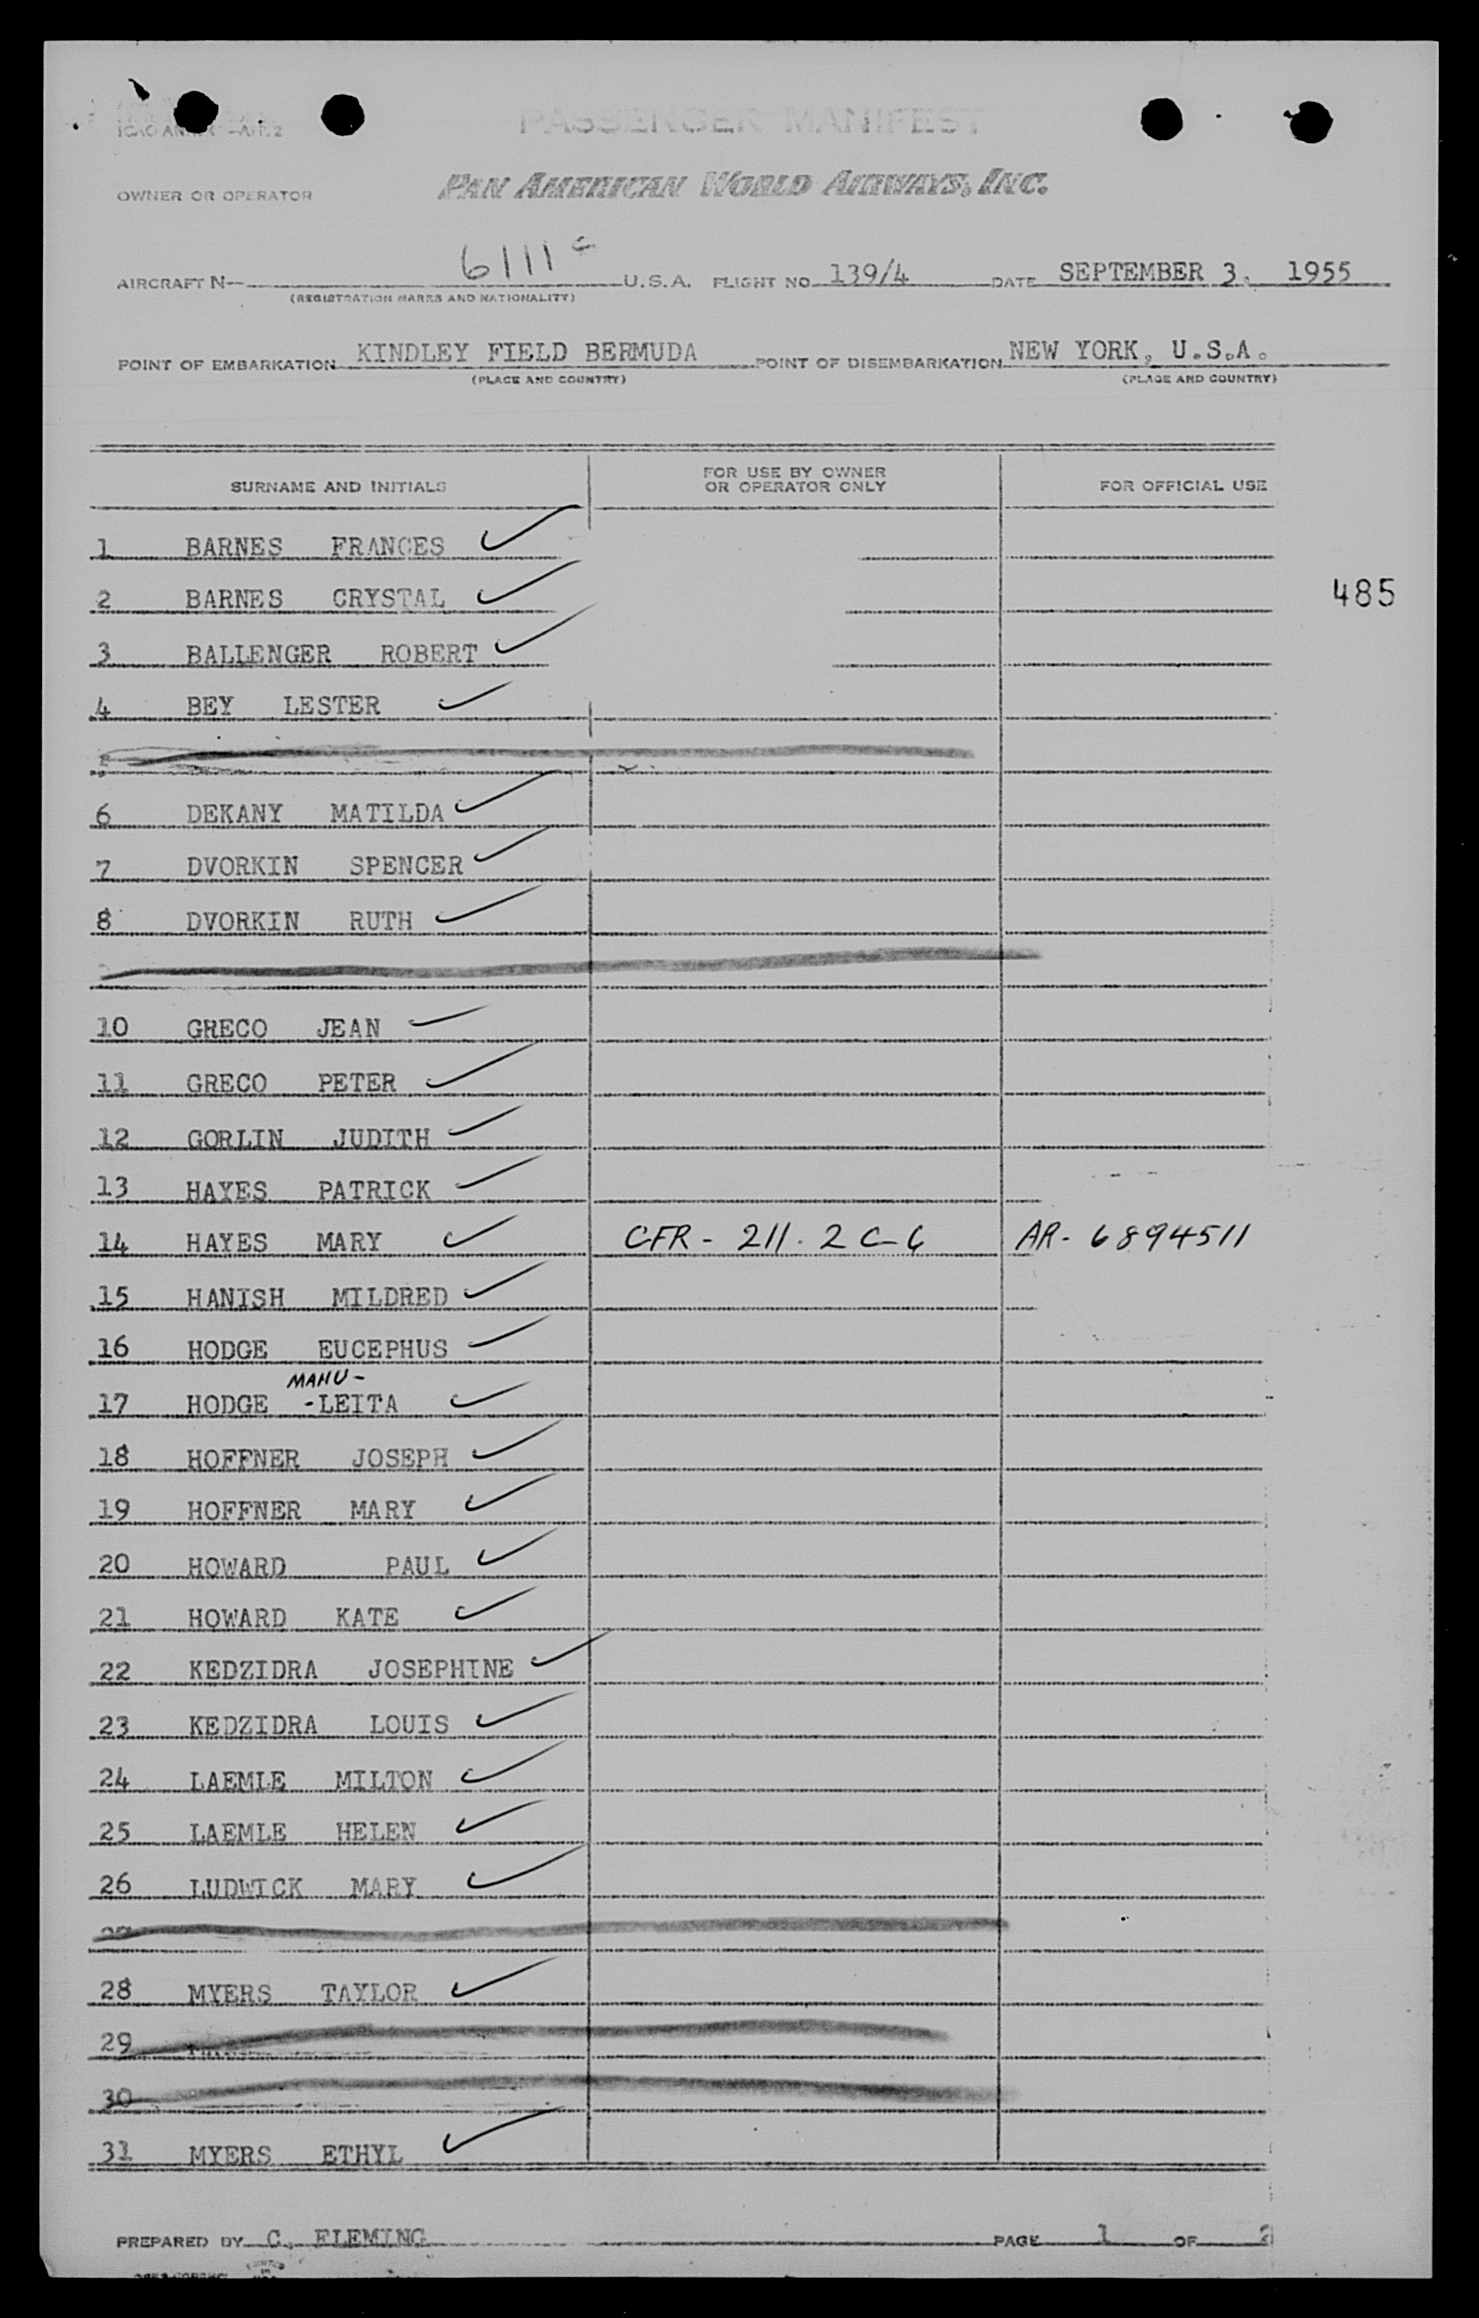 PASSENGER MANIFEST
OWNER OR OPERATOR PAN AMERICAN WORLD AIRWAYS, INC.
AIRCRAFT N- 6111 C U.S.A. FLIGHT NO 139/4 DATE SEPTEMBER 3, 1955
(REGISTRATION MARKS AND NATIONALITY)
POINT OF EMBARKATION KINDLEY FIELD BERMUDA POINT OF DISEMBARKATION NEW YORK, U.S.A.
(PLACE AND COUNTRY) (PLACE AND COUNTRY)
SURNAME AND INITIALS FOR USE BY OWNER OR OPERATOR ONLY FOR OFFICIAL USE
1 BARNES FRANCES
2 BARNES CRYSTAL
485
3 BALLENGER ROBERT
4 BEY LESTER
6 DEKANY MATILDA
7 DVORKIN SPENCER
8 DVORKIN RUTH
10 GRECO JEAN
11 GRECO PETER
12 GORLIN JUDITH
13 HAYES PATRICK
14 HAYES MARY CFR - 211. 2 C-6 AR- 6894511
15 HANISH MILDRED
16 HODGE EUCEPHUS
MANU-
17 HODGE -LEITA
18 HOFFNER JOSEPH
19 HOFFNER MARY
20 HOWARD PAUL
21 HOWARD KATE
22 KEDZIDRA JOSEPHINE
23 KEDZIDRA LOUIS
24 LAEMLE MILTON
25 LAEMLE HELEN
26 LUDWICK MARY
27
28 MYERS TAYLOR
29
30
31 MYERS ETHYL
PREPARED BY C. FLEMING PAGE 1 OF 2